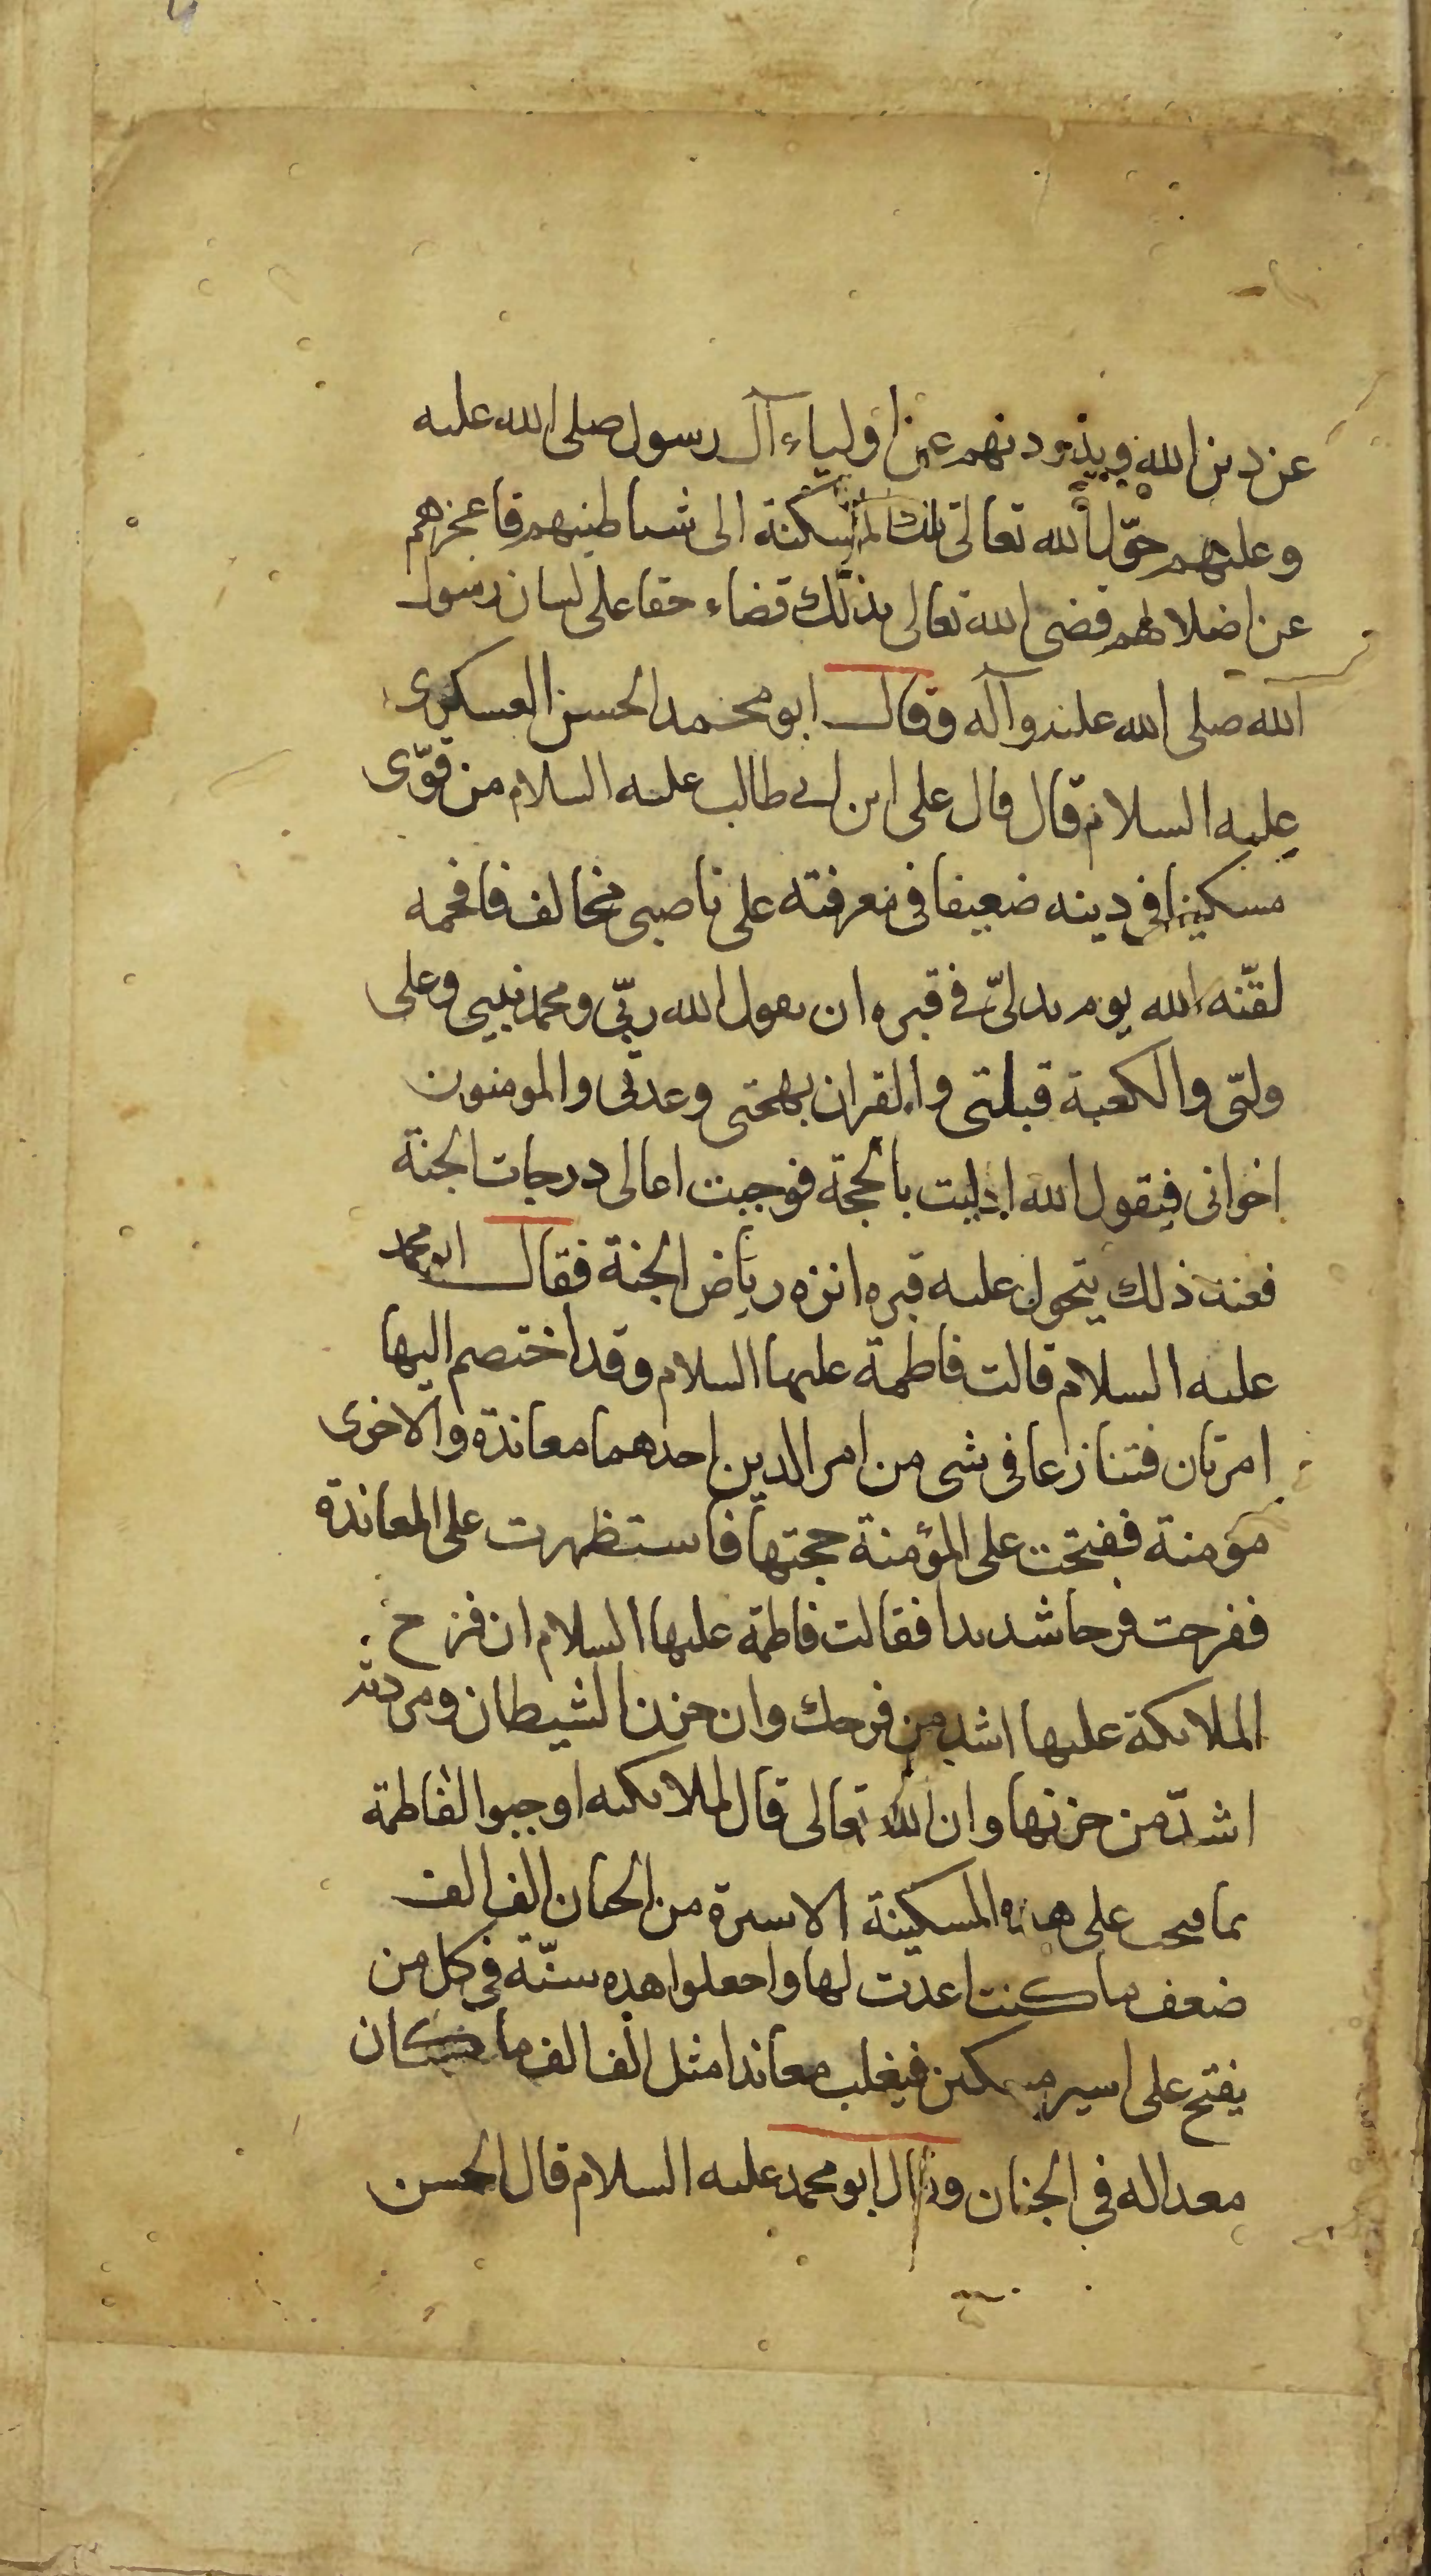 عن دين الله ويذودنهم عن اولياء آل رسول صلى الله عليه
وعليهم حوّل الله تعالى تلك المسكنة الى شياطينهم فاعجزهم
عن اضلالهم قضى الله تعالى بذلك قضاء حقا على لسان رسول
الله صلى الله عليه وآله وقال ابو محمد الحسن العسكرى
عليه السلام قال قال على ابن ابى طالب عليه السلام من قوّى
مسكينا فى دينه ضعيفا فى معرفته على ناصبى مخالف فافحمه
لقّنه الله يوم يدلىّ فى قبره ان يقول الله ربّى ومحمد نبيى وعلى
وليّى والكعبة قبلتى والقران بهجتى وعدتى والمومنون
اخوانى فيقول الله ادليت بالحجة فوجبت اعالى درجات الجنة
فعند ذلك يتحول عليه قبره انزه رياض الجنة فقال ابو محمد
عليه السلام قالت فاطمة عليها السلام وقد اختصم اليها
امرتان فتنازعا فى شى من امر الدين احدهما معاندة والاخرى
مؤمنة ففتحت على المؤمنة حجتها فاستظهرت على المعاندة
ففرحت فرحا شديدا فقالت فاطمة عليها السلام ان فرح
الملايكة عليها اشد من فرحك وان حزن الشيطان ومردته
اشدّ من حزنها وان الله تعالى قال لملايكته اوجبوا لفاطمة
بما فتحت على هذه المسكينة الاسيرة من الجنان الف الف
ضعف ما كنت اعدت لها واجعلوا هذه سنّة فى كل من
يفتح على اسير مسكين فيغلب معاندا مثل الف الف ما كان
معدا له فى الجنان وقال ابو محمد عليه السلام قال الحسن